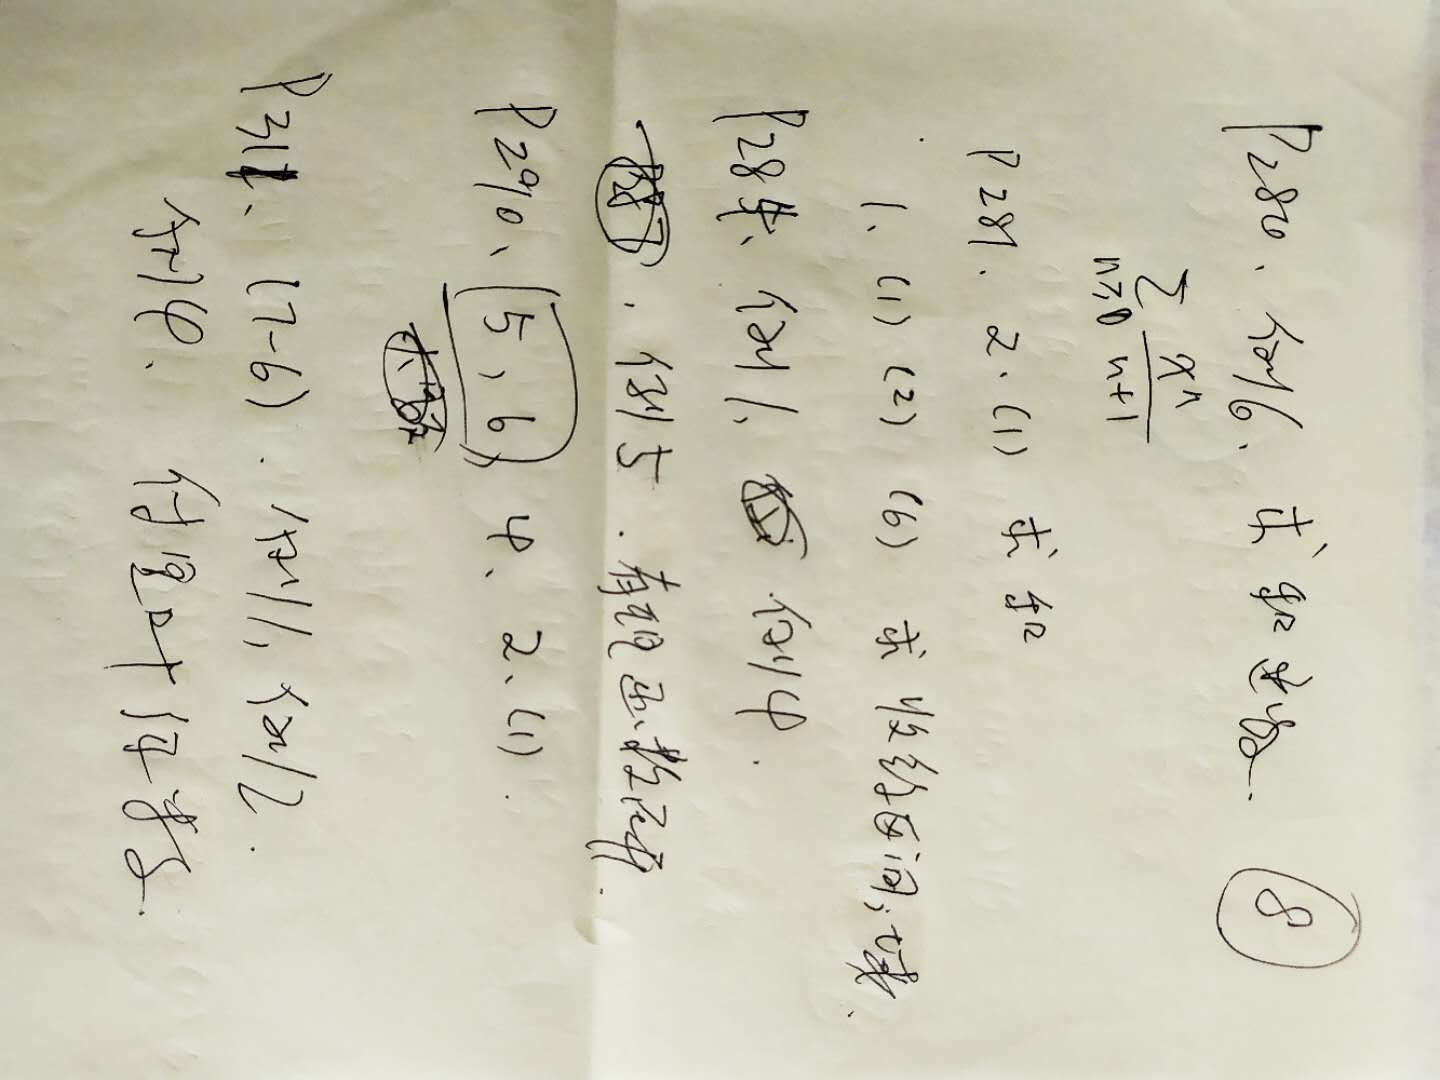 P280、例6、求和函数. ⑧
∑n≥0 xⁿ/(n+1)
P281、2.(1) 求和
1、(1) (2) (6) 求收敛区间,域.
P284、例1、例4.
、例5.有理函数展开.
P290、(5,6),4、2、(1).
P311、(7-6).例1,例2.
例4、 付里叶级数.